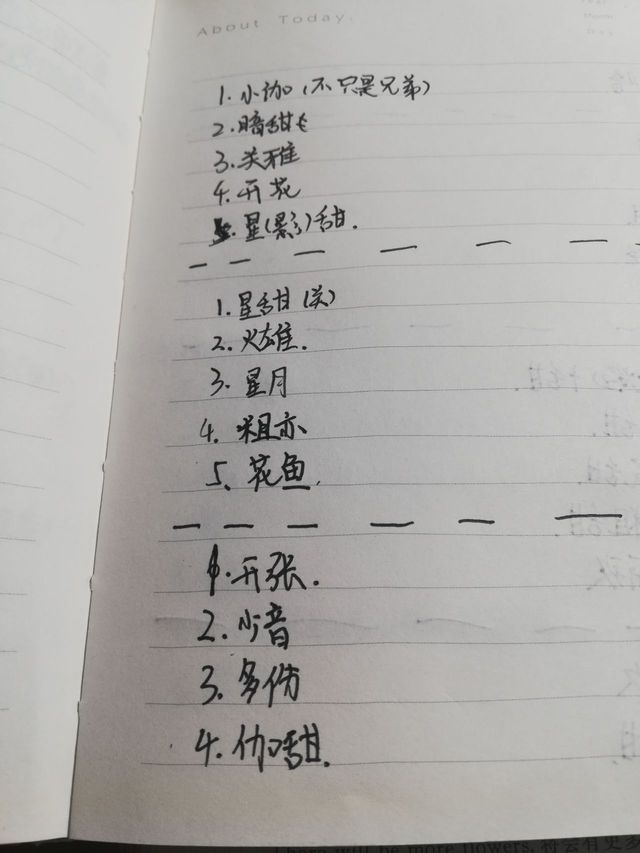 About Today.
1.小伽(不只是兄弟)
2.暗甜
3.关雅
4.开花
5.星(影)甜.
1.星甜(关)
2.火雄.
3.星月
4.粗亦
5.花鱼.
1.开张.
2.少音
3.多伤
4.伽甜.